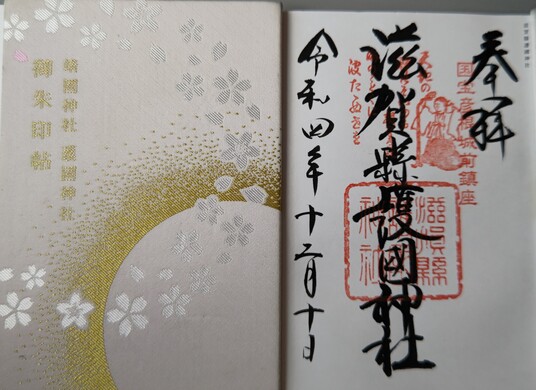 奉拝
滋賀縣護國神社
令和四年十二月十日
国宝彦根城前鎮座
滋賀縣護國神社
靖國神社 護國神社
御朱印帖